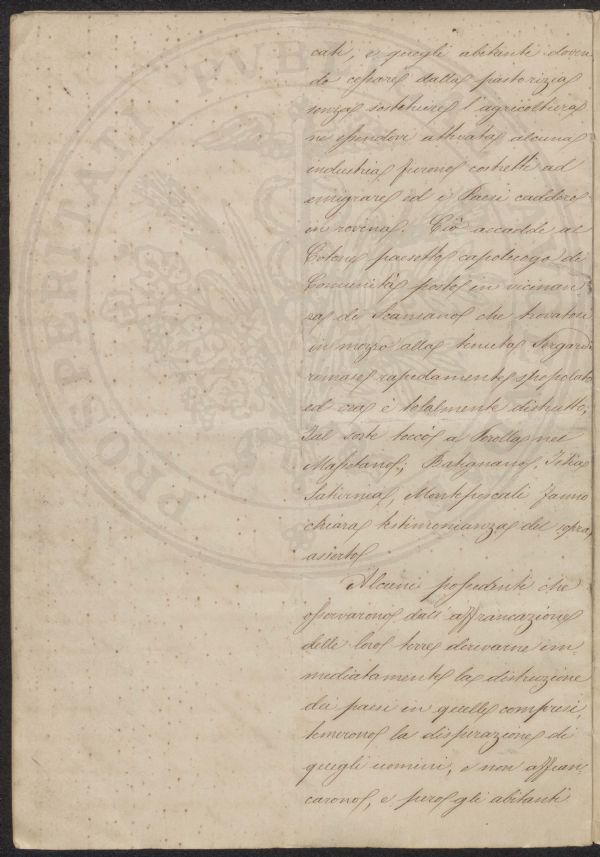 cati, e quegli abitanti doven
do cessare dalla pastorizia
senza sostituire l'agricoltura
ne essendovi attivata alcuna
industria furono costretti ad
emigrare ed i Paesi caddero
in rovina. Ciò accadde al
Cotone paesetto capoluogo di
Comunità posto in vicinan
za di Scansano che trovatosi
in mezzo alla tenuta Sergardi
rimase rapidamente spopolato
ed ora è totalmente distrutto.
Tal sorte toccò a Perolla nel
Massetano; Batignano, Istia
Saturnia, Montepescali fanno
chiara testimonianza del sopra
asserto
Alcuni possidenti che
osservarono dall'affrancazione
delle loro terre derivarne im
mediatamente la distruzione
dei paesi in quelle compresi,
temerono la disperazione di
quegli uomini, e non affran
carono, e pure gli abitanti
PROSPERITATI PUBLICAE